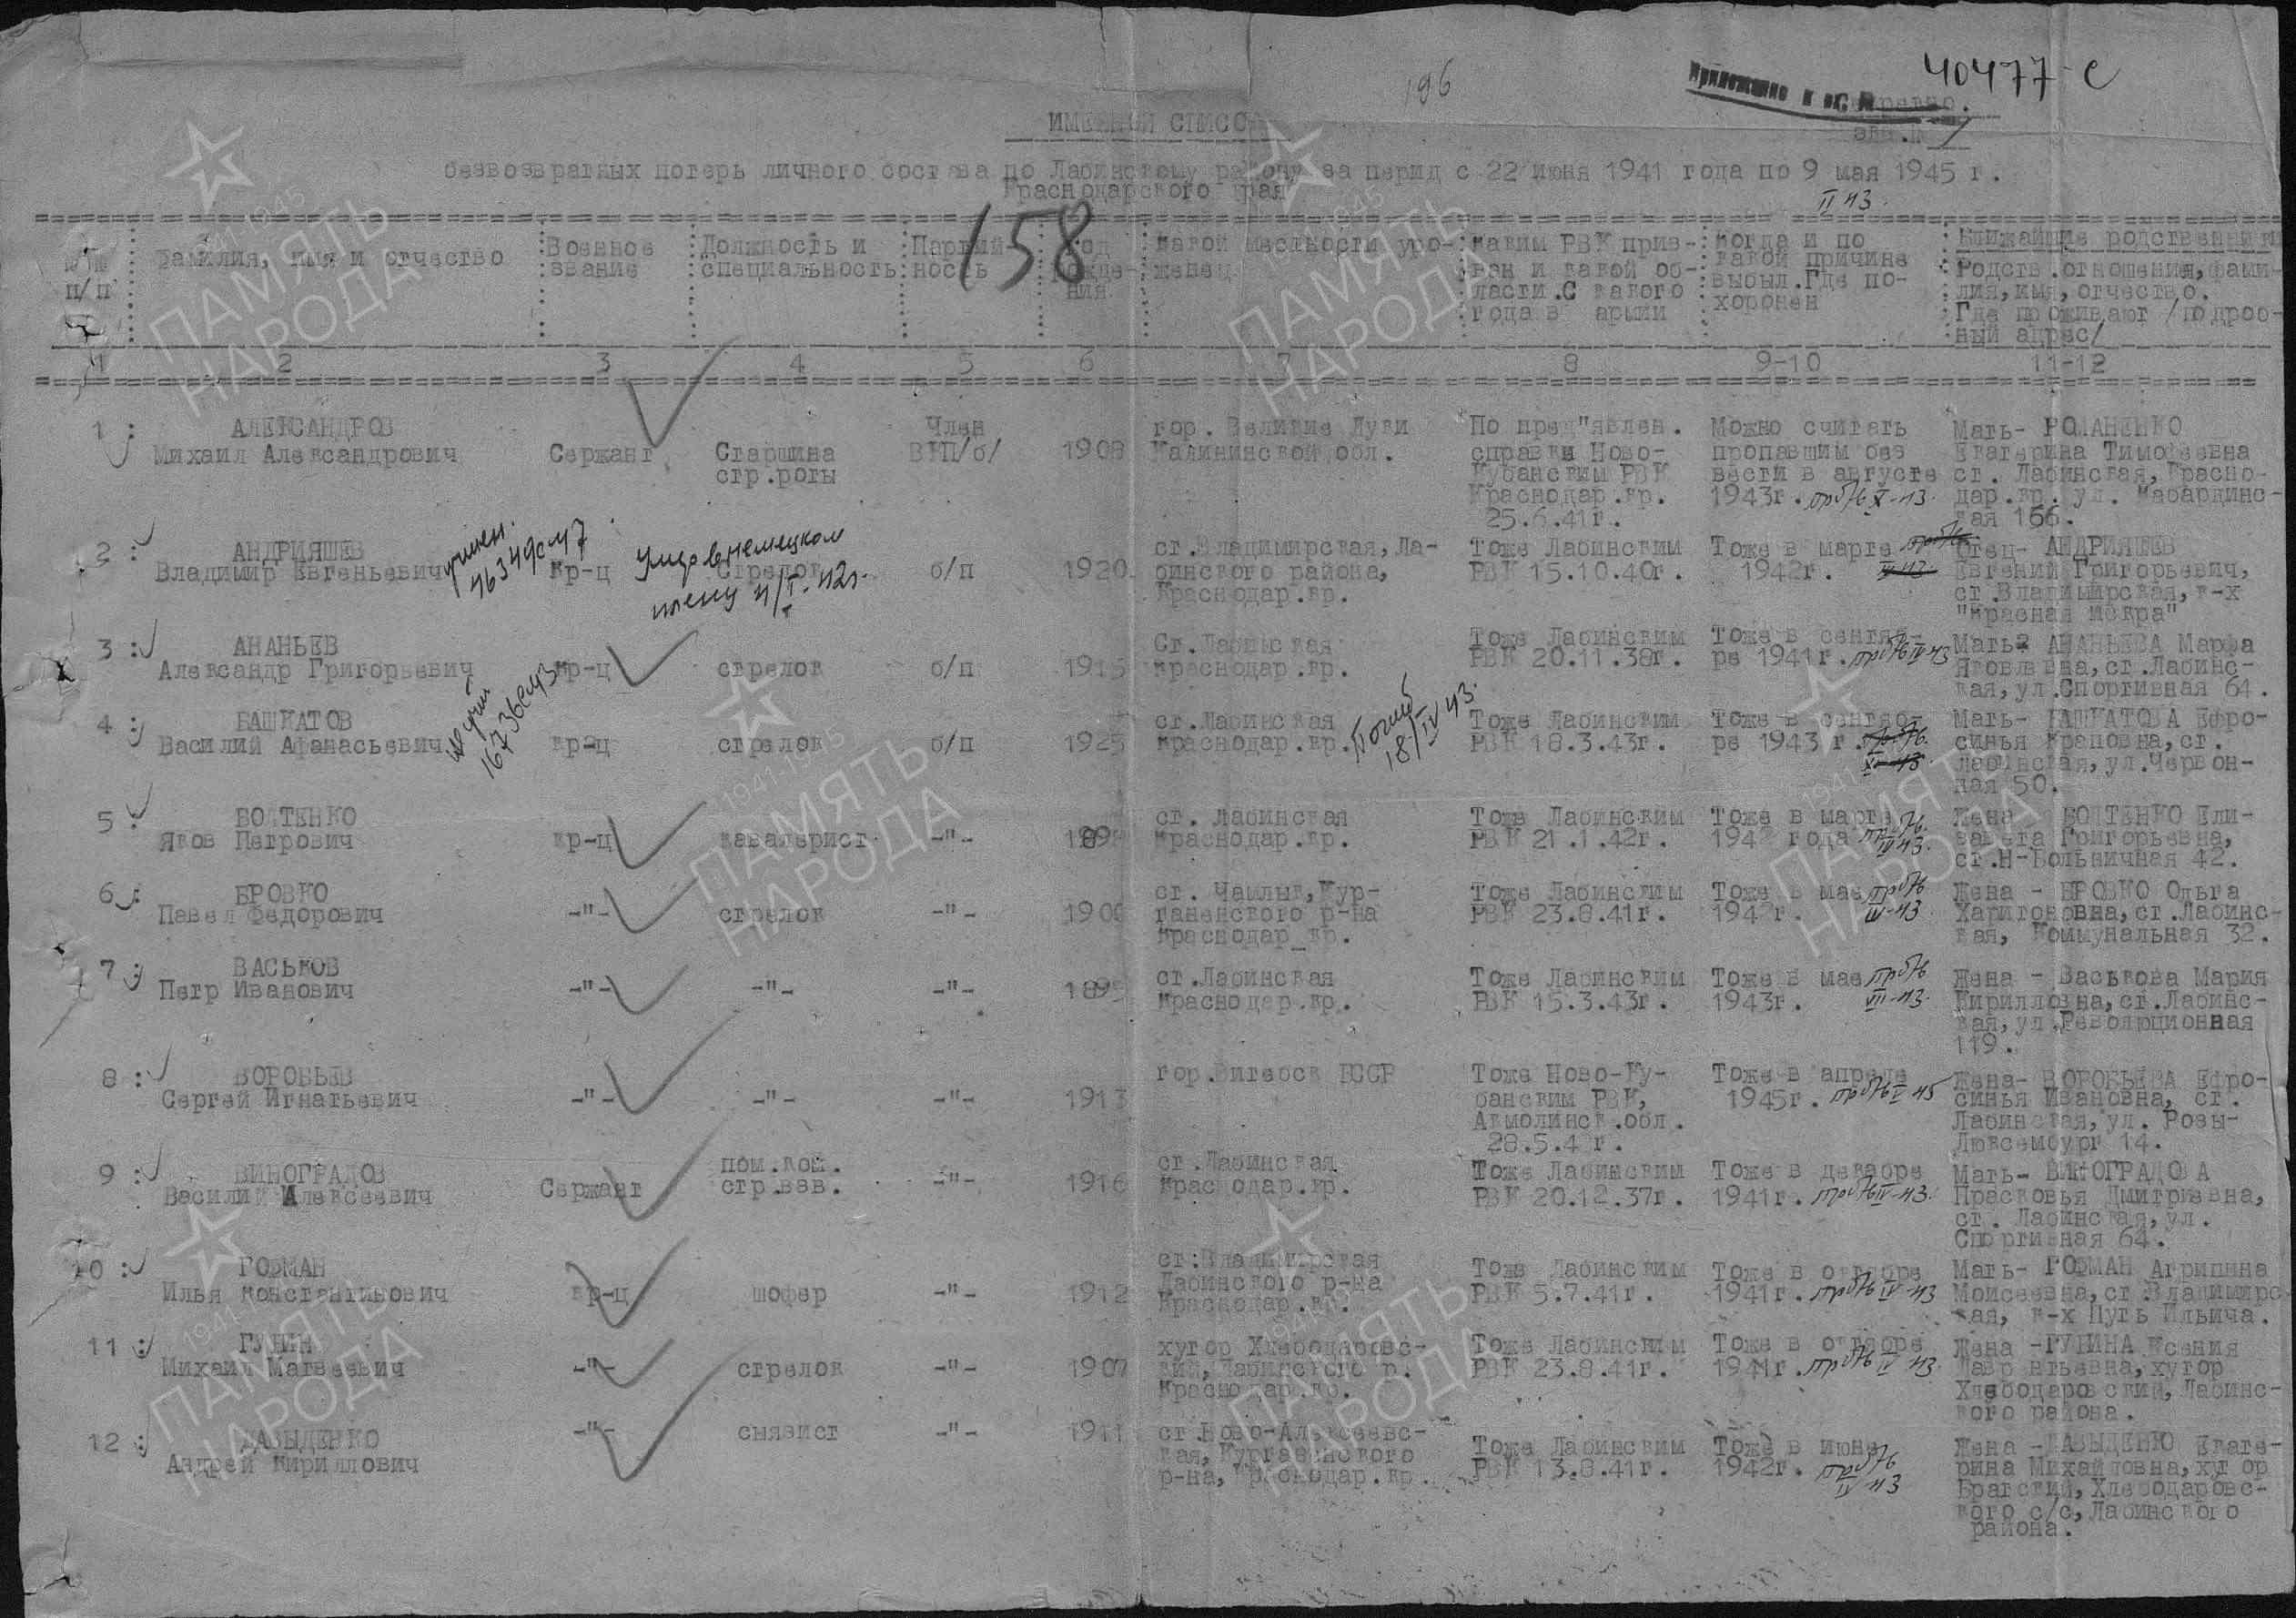 196
40477-с
ИМЕННОЙ СПИСО
безвозвратных потерь личного состава по Лабинскому району за перид с 22 июня 1941 года по 9 мая 1945 г.
Краснодарского края
II 43.
158
п/п
Фамилия, имя и отчество
Военное звание
Должность и специальность
Партий-ность
какой местности уро-женец
каким РВК приз-ван и какой об-ласти.С какого года в армии
когда и по какой причине выбыл.Где по-хоронен
Ближайшие родственники
Родств.отношения,фами-лия,имя,отчество.
Где проживают /подроб-ный адрес/
1 2 3 4 5 6 7 8 9-10 11-12
1 : АЛЕКСАНДРОВ
Михаил Александрович Сержант Старшина стр.роты Член ВКП/б/ 1908 гор. Великие Луки Калининской обл.
По пред"явлен. справки Ново-Кубанским РВК Краснодар.кр. 25.6.41г.
Можно считать пропавшим без вести в августе 1943г. пр б/в X-43.
Мать- РОМАНЕНКО Екатерина Тимофеевна ст. Лабинская, Красно-дар.кр. ул. Кабардинс-кая 166.
2 : АНДРИЯШЕВ
Владимир Евгеньевич кр-ц Стрелок б/п 1920 ст.Владимирская,Ла-бинского района, Краснодар.кр.
46349с47
Умер в немецком плену 4/I-42г.
Тоже Лабинским РВК 15.10.40г.
Тоже в марте 1942г.
Отец- АНДРИЯШЕВ Евгений Григорьевич, ст.Владимирская,к-х "Красная искра"
3 : АНАНЬЕВ
Александр Григорьевич кр-ц стрелок б/п 1915 Ст.Лабинская Краснодар.кр.
Тоже Лабинским РВК 20.11.38г.
Тоже в сентяб-ре 1941г. пр б/в IV 43
Мать- АНАНЬЕВА Марфа Яковлевна,ст.Лабинс-кая,ул.Спортивная 64.
4 : БАШКАТОВ
Василий Афанасьевич кр-ц стрелок б/п 1925 ст.Лабинская Краснодар.кр.
16736с43
Погиб 18/IV 43.
Тоже Лабинским РВК 18.3.43г.
Тоже в сентяб-ре 1943г.
Мать- БАШКАТОВА Ефро-синья Карповна,ст. Лабинская,ул.Червон-ная 50.
5 БОЛТЕНКО
Яков Петрович кр-ц кавалерист -"- ст. Лабинская Краснодар.кр.
Тоже Лабинским РВК 21.1.42г.
Тоже в марте 194 года пр б/в
Жена БОЛТЕНКО Ели-завета Григорьевна, ст.Н-Больничная 42.
6 : БРОВКО
Павел Федорович -"- стрелок -"- ст. Чамлык,Кур-ганенского р-на Краснодар_кр.
Тоже Лабинским РВК 23.8.41г.
Тоже в мае 194 г. пр б/в
Жена - БРОВКО Ольга Харитоновна,ст.Лабинс-кая, Коммунальная 32.
7 : ВАСЬКОВ
Петр Иванович -"- -"- -"- 1895 ст.Лабинская Краснодар.кр.
Тоже Лабинским РВК 15.3.43г.
Тоже в мае 1943г. пр б/в VII-43.
Жена - Васькова Мария Кирилловна,ст.Лабинс-кая,ул.Революционная 119.
8 : ВОРОБЬЕВ
Сергей Игнатьевич -"- -"- -"- 1913 гор.Витебск БССР
Тоже Ново-Ку-банским РВК, Акмолинск.обл. 28.5.4 г.
Тоже в апреле 1945г. пр б/в V 45
Жена- ВОРОБЬЕВА Ефро-синья Ивановна, ст. Лабинская,ул. Розы-Люксембург 14.
9 : ВИНОГРАДОВ
Василий Алексеевич Сержант пом.ком. стр.взв. -"- 1916 ст.Лабинская Краснодар.кр.
Тоже Лабинским РВК 20.12.37г.
Тоже в декабре 1941г. пр б/в IV-43.
Мать- ВИНОГРАДОВА Прасковья Дмитриевна, ст. Лабинская,ул. Спортивная 64.
10 : ГОФМАН
Илья Константинович кр-ц шофер -"- 1912 ст:Владимирская Лабинского р-на Краснодар.кр.
Тоже Лабинским РВК 5.7.41г.
Тоже в октябре 1941г. пр б/в IV-43
Мать- ГОФМАН Агрипина Моисеевна,ст Владимирс-кая, к-х Путь Ильича.
11 : ГУНИН
Михаил Матвеевич -"- стрелок -"- 1907 хутор Хлебодаровс-кий,Лабинского р. Краснодар.кр.
Тоже Лабинским РВК 23.8.41г.
Тоже в октябре 1941г. пр б/в IV 43
Жена -ГУНИНА Ксения Лавр нтьевна,хутор Хлебодаровский,Лабинс-кого района.
12 : ДАВЫДЕНКО
Андрей Кириллович -"- сыязист -"- 1911 ст.Ново-Алексеевс-кая,Курганинского р-на,Краснодар.кр.
Тоже Лабинским РВК 13.8.41г.
Тоже в июне 1942г. пр б/в IV 43
Жена -ДАВЫДЕНКО Екате-рина Михайловна,хутор Братский,Хлебодаровс-кого с/с,Лабинского района.
1941-1945
ПАМЯТЬ
НАРОДА